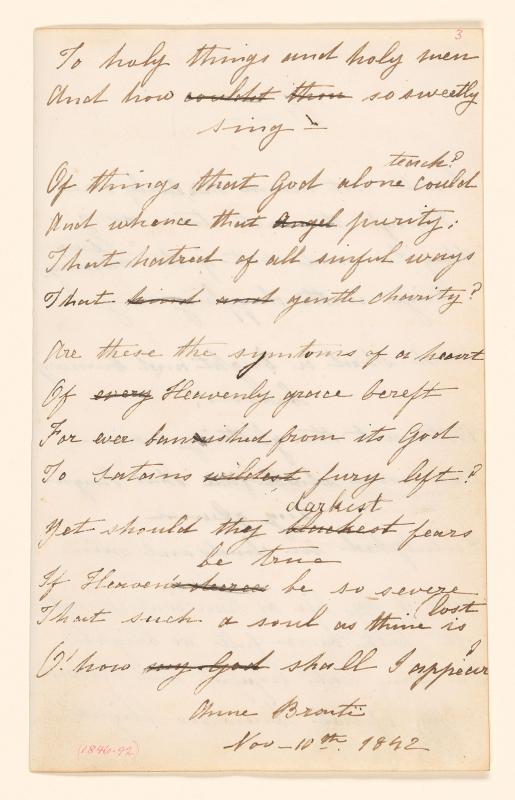 3
To holy things and holy men
And how couldst thou so sweetly
sing —
teach?
Of things that God alone could
And whence that angel purity;
That hatred of all sinful ways
That kind and gentle charity?
Are these the symtoms of a heart
Of every Heavenly grace bereft
For ever bannished from its God
To Satains wildest fury left?
darkest
Yet should thy blackest fears
be true
If Heaven's decree be so severe
lost
That such a soul as thine is
O! how my God shall I appear?
Anne Bronti
Nov – 10th. 1842
(1846-92)